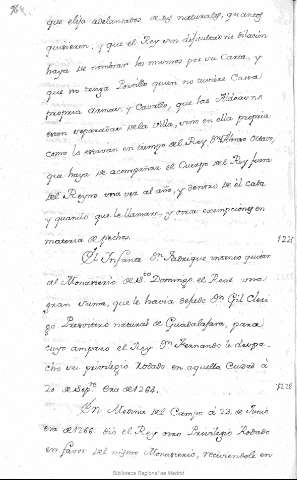 que elija adelantados de sus naturales, quantos
quisieren, y que el Rey sin dificultad ni dilacion
haya de nombrar los mismos por su Carta, y
que no tenga Portillo quien no tuviere Cassa
propria Armas, y Cavallo, que las Aldeas no
esten separadas de la Villa, sino en ella propria
como lo estavan en tiempo del Rey Dn. Alonso Octavo,
que haya de acompañar el Cuerpo del Rey fuera
del Reyno una vez al año, y dentro de èl cada
y quando que le llamare, y otras exempciones en
materia de pechos.
El Infante Dn. Fadrique intento quitar
al Monasterio de Sto. Domingo el Real una
gran suma, que le havia dejado Dn. Gil Cleri
go Presvitero natural de Guadalajara, para
cuyo amparo el Rey Dn. Fernando le despa-
cho su privilegio Rodado en aquella Ciudad à
20 de Sepre. Era de 1264.
En Medina del Campo à 23. de Junio
era de 1266. dió el Rey otro Privilegio Rodado
en favor del mismo Monasterio, reciviendole en
1228
Biblioteca Regional de Madrid